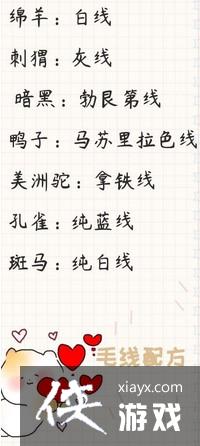 绵羊：白线
刺猬：灰线
暗黑：勃艮第线
鸭子：马苏里拉色线
美洲驼：拿铁线
孔雀：纯蓝线
斑马：纯白线
毛线配方
xiayx.com
侠游戏